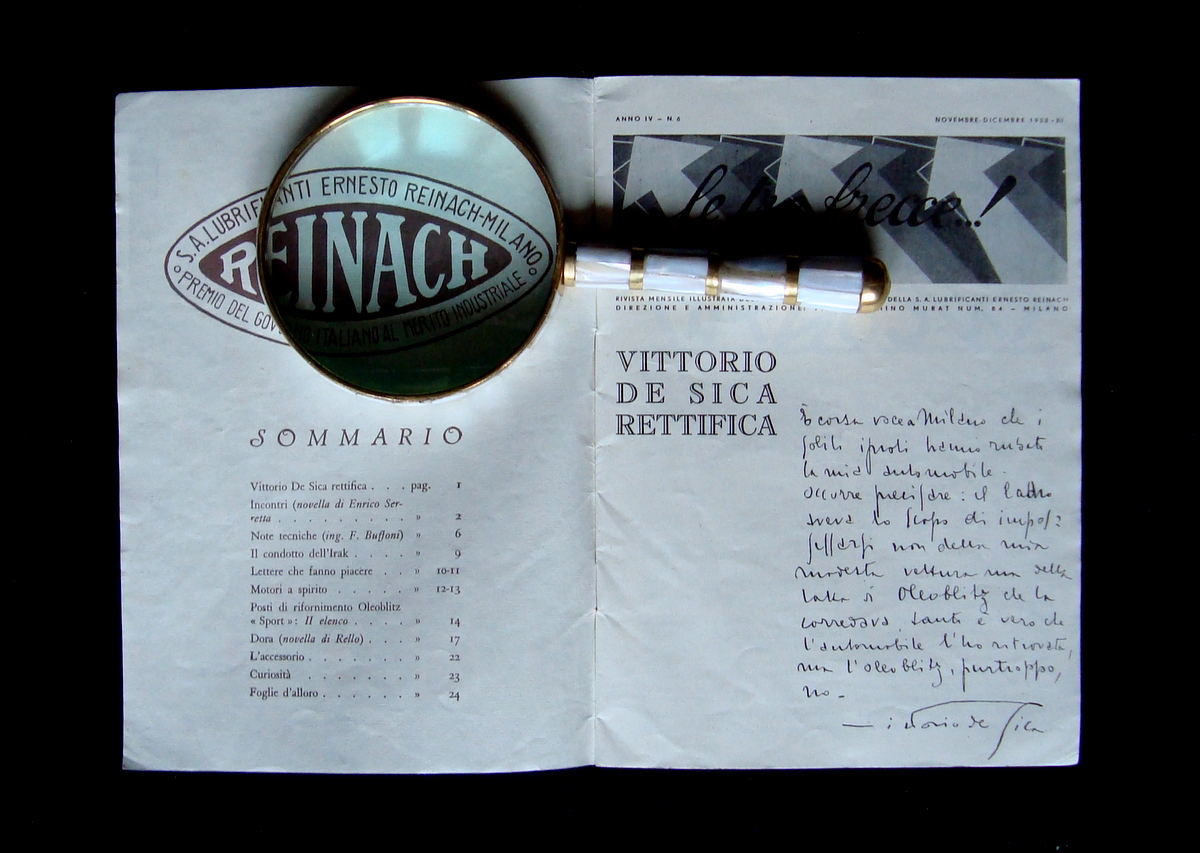 S.A. LUBRIFICANTI ERNESTO REINACH-MILANO
REINACH
PREMIO DEL GOVERNO ITALIANO AL MERITO INDUSTRIALE
SOMMARIO
Vittorio De Sica rettifica . . . pag. 1
Incontri (novella di Enrico Ser-
retta . . . . . . . . . » 2
Note tecniche (ing. F. Buffoni) » 6
Il condotto dell'Irak . . . . » 9
Lettere che fanno piacere . . » 10-11
Motori a spirito . . . . . » 12-13
Posti di rifornimento Oleoblitz
« Sport »: Il elenco . . . . » 14
Dora (novella di Rello) . . . » 17
L'accessorio . . . . . . . » 22
Curiosità . . . . . . . » 23
Foglie d'alloro . . . . . . » 24
ANNO IV - N. 6
NOVEMBRE-DICEMBRE
le tre frecce..!
RIVISTA MENSILE ILLUSTRATA DELLA S. A. LUBRIFICANTI ERNESTO REINACH
DIREZIONE E AMMINISTRAZIONE: MURAT NUM. 84 - MILANO
VITTORIO
DE SICA
RETTIFICA
È corsa voce a Milano che i
soliti ignoti hanno rubato
la mia automobile.
Occorre precisare: il ladro
aveva lo scopo di impos=
sessarsi non della mia
modesta vettura ma della
latta di Oleoblitz che la
corredava. Tanto è vero che
l'automobile l'ho ritrovata,
ma l'oleoblitz, purtroppo,
no.
Vittorio de Sica